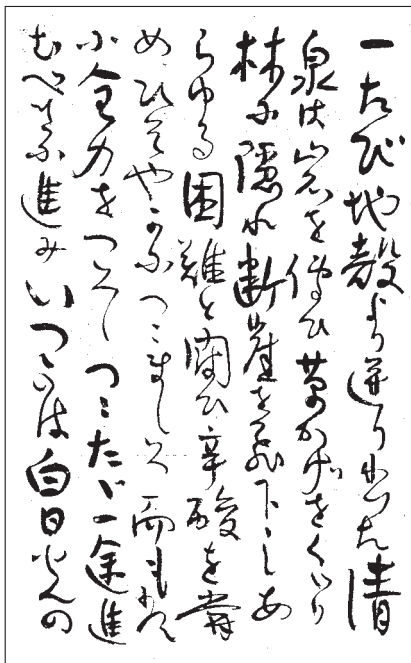 一たび地殻より迸り出でた清
泉は岩を傳ひ草かげをくぐり
林に隠れ断崖を飛下しあ
らゆる困難と闘ひ辛酸を嘗
めひそやかにつつましく而も
に全力をつくしつつただ一途進
むべきに進みいつかは白日の